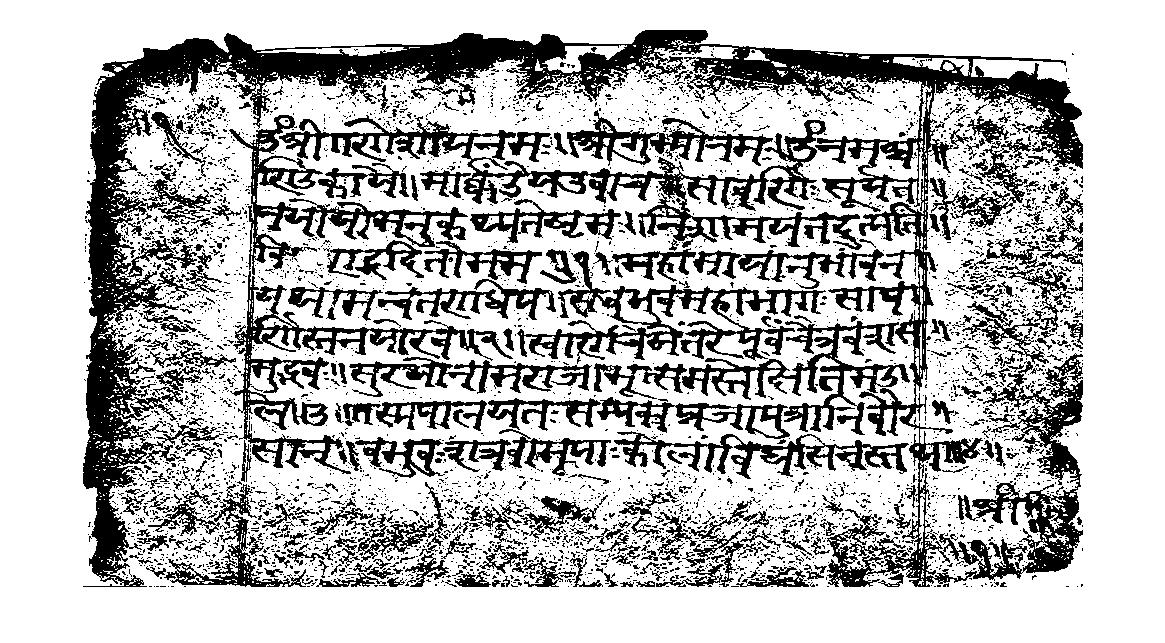 ॥१
ॐ श्रीगणेशायनमः॥श्रीगुरुभ्योनमः॥ॐनमश्चं॥
डिकायै॥मार्कंडेयउवाच॥सावर्णिः सूर्यत॥
नयोयोमनुः कथ्यतेष्टमः॥निशामयतदुत्पत्तिं॥
वि स्तराद्गदितोमम॥१॥महामायानुभावेन॥
यथामन्वंतराधिपः॥सबभूवमहाभागः साव॥
र्णिस्तनयोरवेः॥२॥स्वारोचिषेंतरे पूर्वंचैत्रवंशस॥
मुद्भवः॥सुरथोनामराजाभूत्समस्तेक्षितिमंड॥
ले॥३॥तस्यपालयतः सम्यक् प्रजापुत्रानिवौर॥
सान्॥बभूवुः शत्रवोभूपाः कोलाविध्वंसिनस्तथा॥४॥
॥श्री
॥१॥